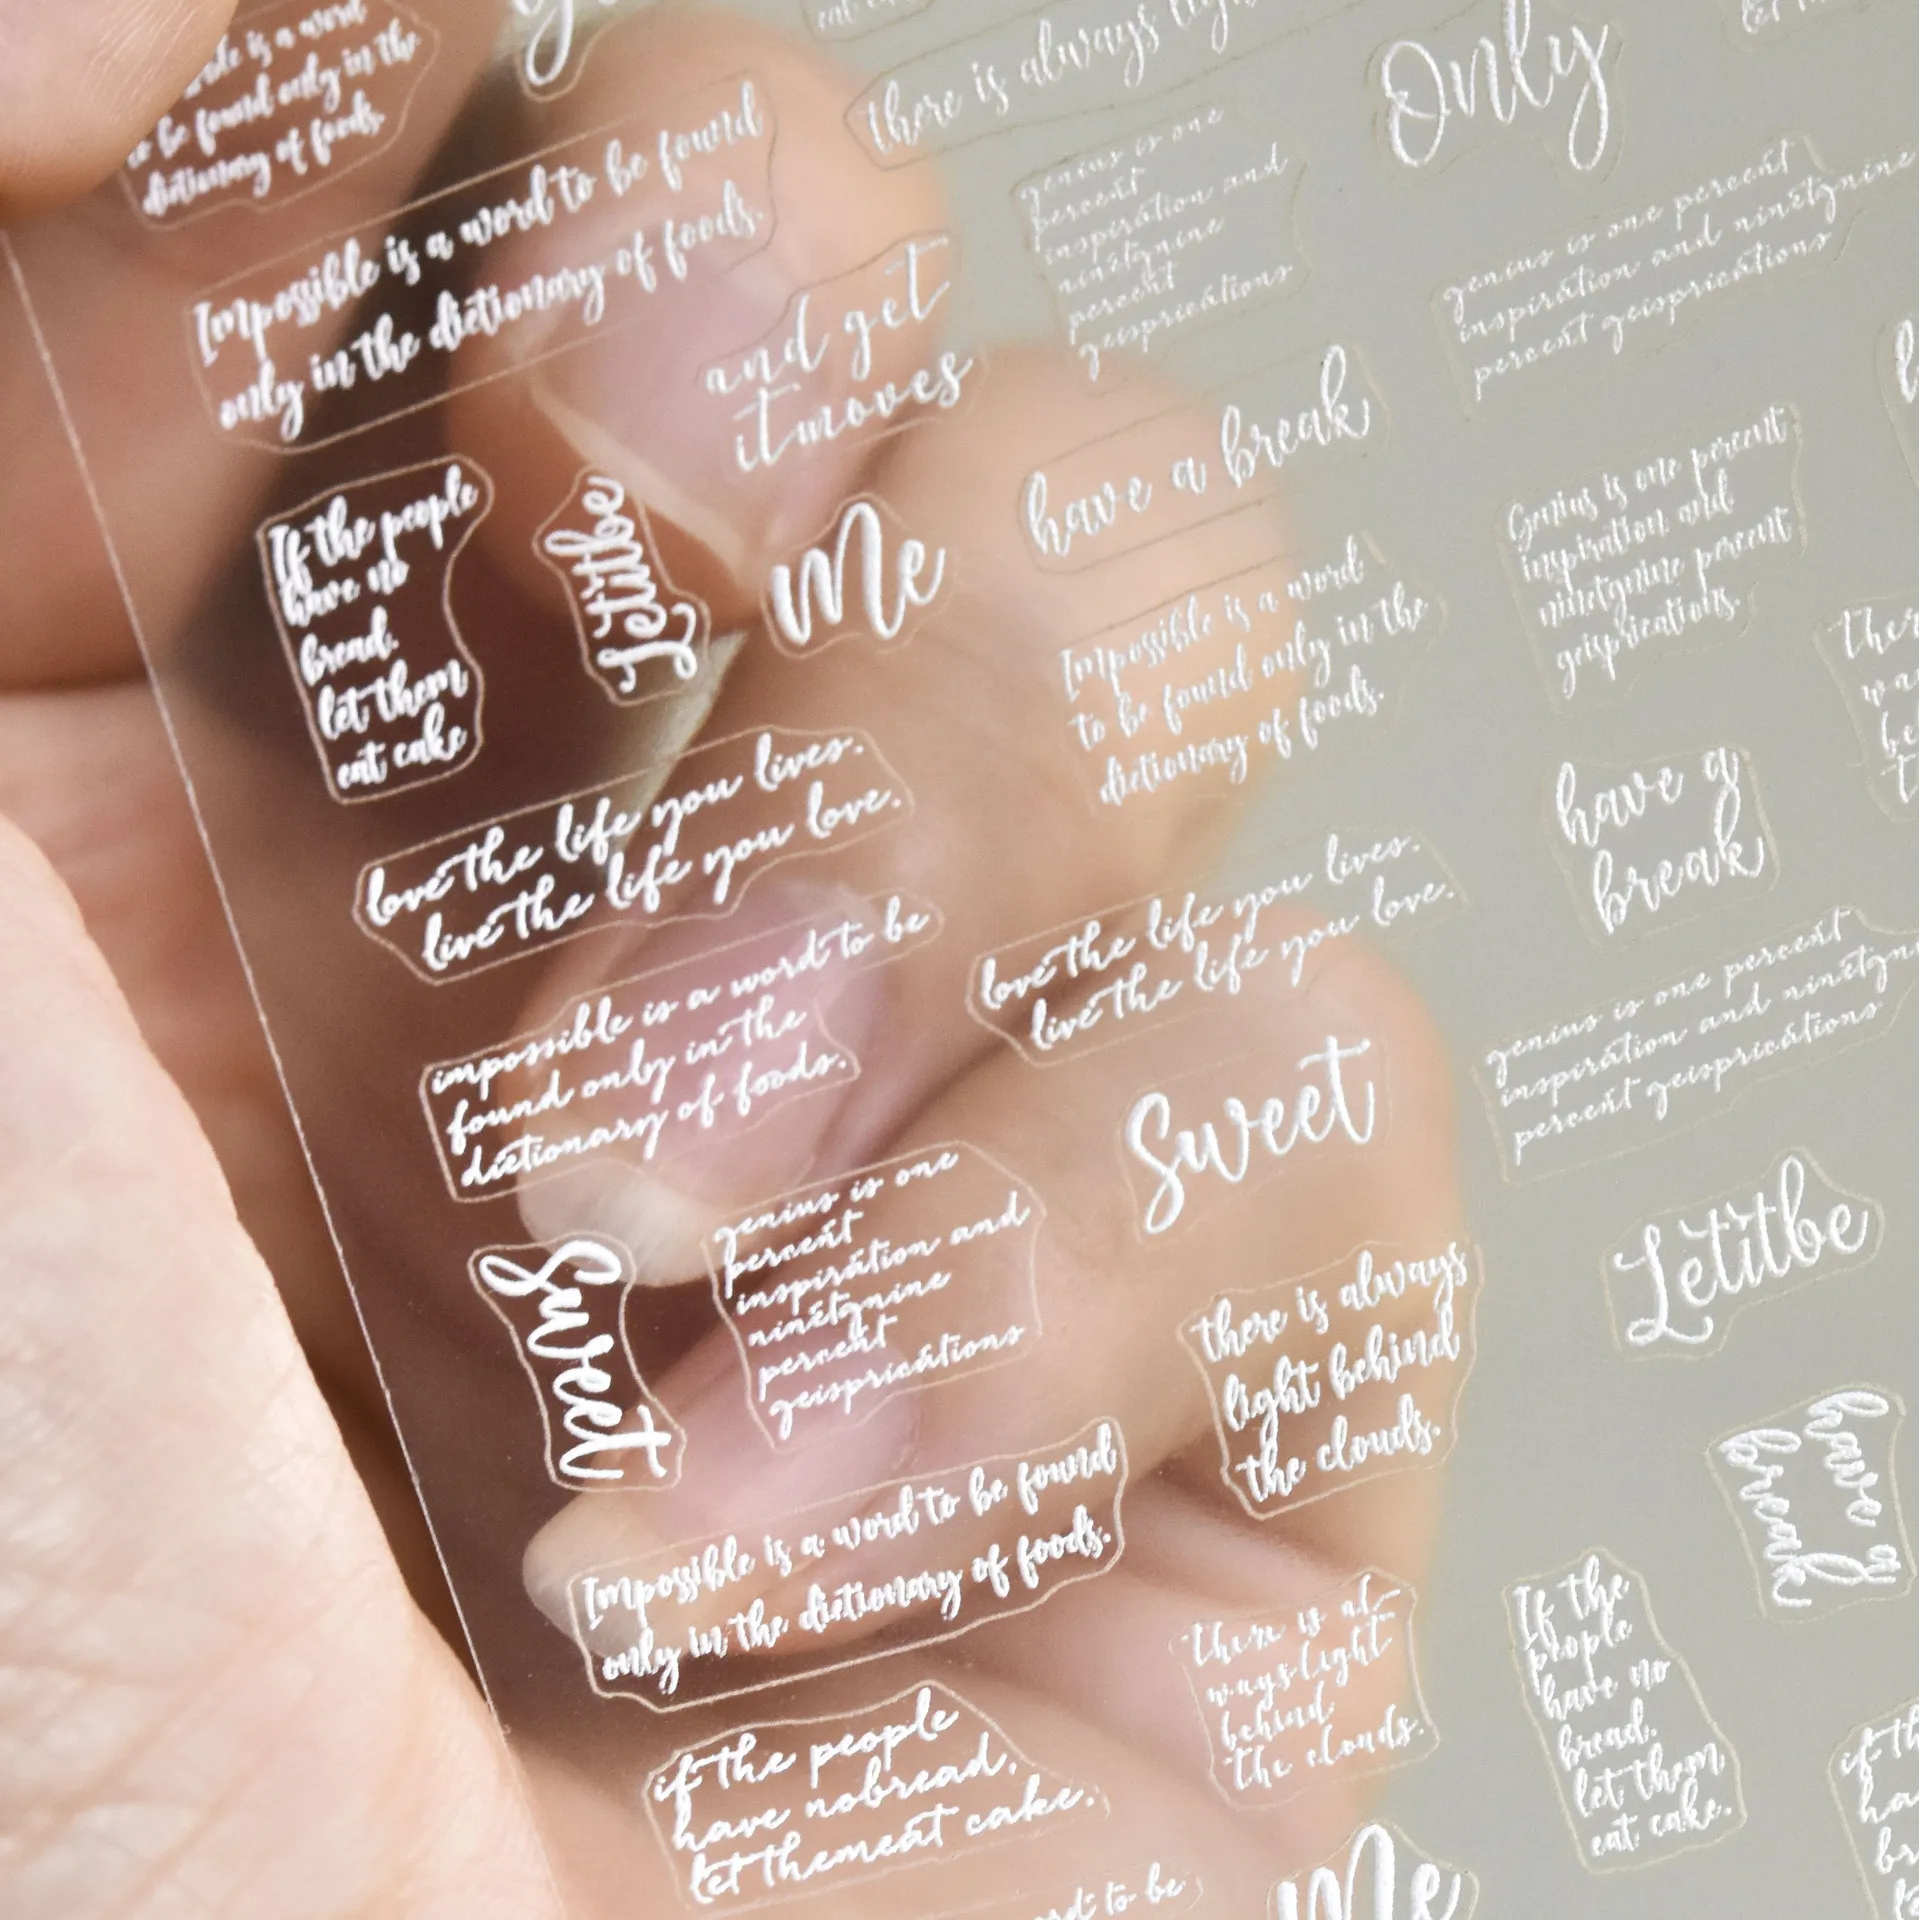 is a word
be found only in the
to be found only in the
dictionary of foods.
there is always
Only
Impossible is a word to be found
only in the dictionary of foods.
genius is one
percent
inspiration and
ninetynine
percent
geisprications
genius is one percent
inspiration and ninetynine
percent geisprications
and get
itmoves
have a break
If the people
have no
bread.
let them
eat cake
Letitbe
Me
Impossible is a word
to be found only in the
dictionary of foods.
Genius is one percent
inspiration and
ninetynine percent
geisprications.
love the life you lives.
live the life you love.
have a
break
impossible is a word to be
found only in the
dictionary of foods.
love the life you lives.
live the life you love.
genius is one percent
inspiration and
percent geisprications
Sweet
Sweet
genius is one
percent
inspiration and
ninetynine
percent
geisprications
there is always
light behind
the clouds.
Letitbe
have a
break
Impossible is a word to be found
only in the dictionary of foods.
there is al-
ways light
behind
the clouds.
If the
people
have no
bread.
let them
eat cake.
if the people
have nobread,
let themeat cake.
to be
Me